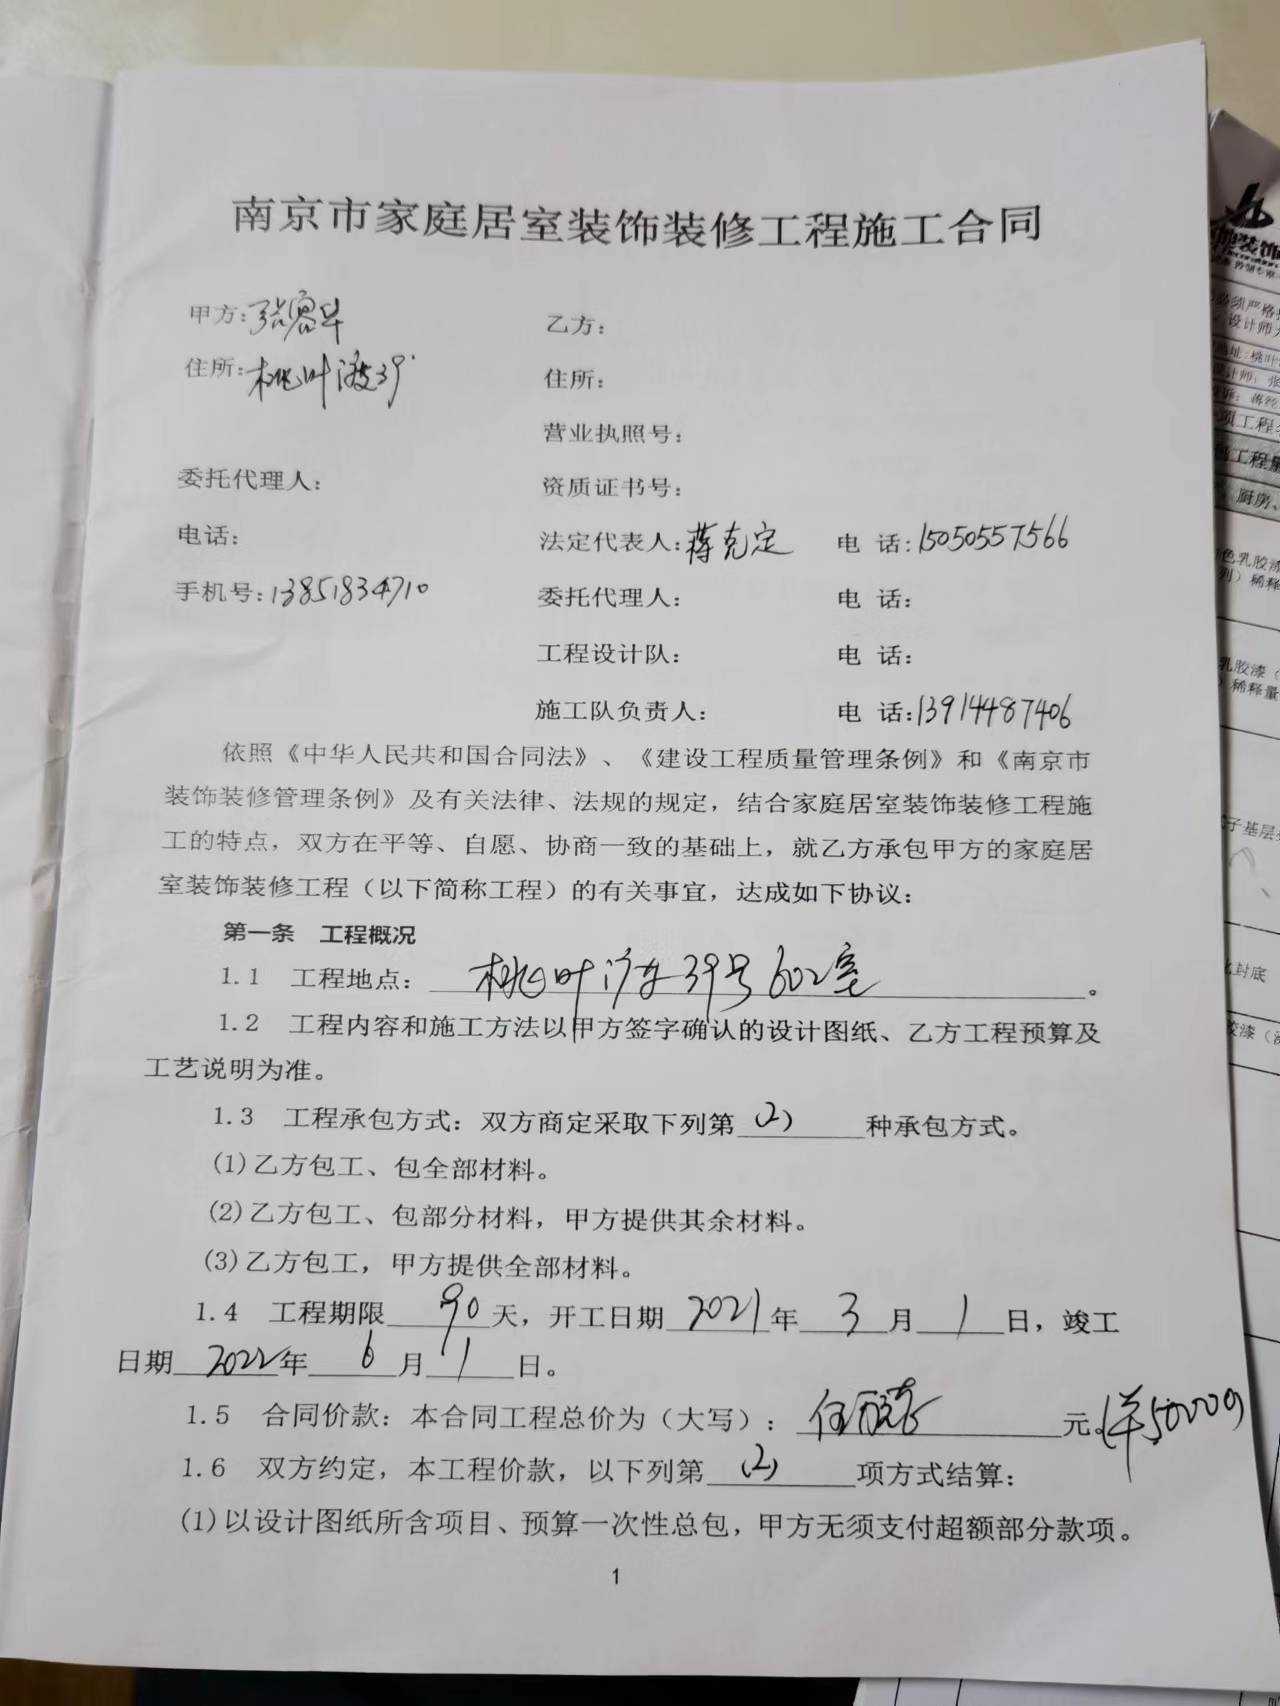 南京市家庭居室装饰装修工程施工合同
甲方:
乙方:
住所:桃叶渡39
住所:
营业执照号:
委托代理人:
资质证书号:
电话:
法定代表人:蒋克定 电 话:15050557566
手机号:13851834710
委托代理人: 电 话:
工程设计队: 电 话:
施工队负责人: 电 话:13914487406
依照《中华人民共和国合同法》、《建设工程质量管理条例》和《南京市
装饰装修管理条例》及有关法律、法规的规定，结合家庭居室装饰装修工程施
工的特点，双方在平等、自愿、协商一致的基础上，就乙方承包甲方的家庭居
室装饰装修工程（以下简称工程）的有关事宜，达成如下协议:
第一条 工程概况
1.1 工程地点: 桃叶渡39号602室。
1.2 工程内容和施工方法以甲方签字确认的设计图纸、乙方工程预算及
工艺说明为准。
1.3 工程承包方式: 双方商定采取下列第(2)种承包方式。
(1)乙方包工、包全部材料。
(2)乙方包工、包部分材料，甲方提供其余材料。
(3)乙方包工，甲方提供全部材料。
1.4 工程期限90天，开工日期2021年3月1日，竣工
日期2022年6月1日。
1.5 合同价款: 本合同工程总价为（大写）: 伍万 元。
1.6 双方约定，本工程价款，以下列第(2)项方式结算:
(1)以设计图纸所含项目、预算一次性总包，甲方无须支付超额部分款项。
1
装饰
必须严格
设计师
桃叶
项工程
工程量
厨房、
色乳胶漆
稀释
乳胶漆
稀释量
子基层
封底
胶漆